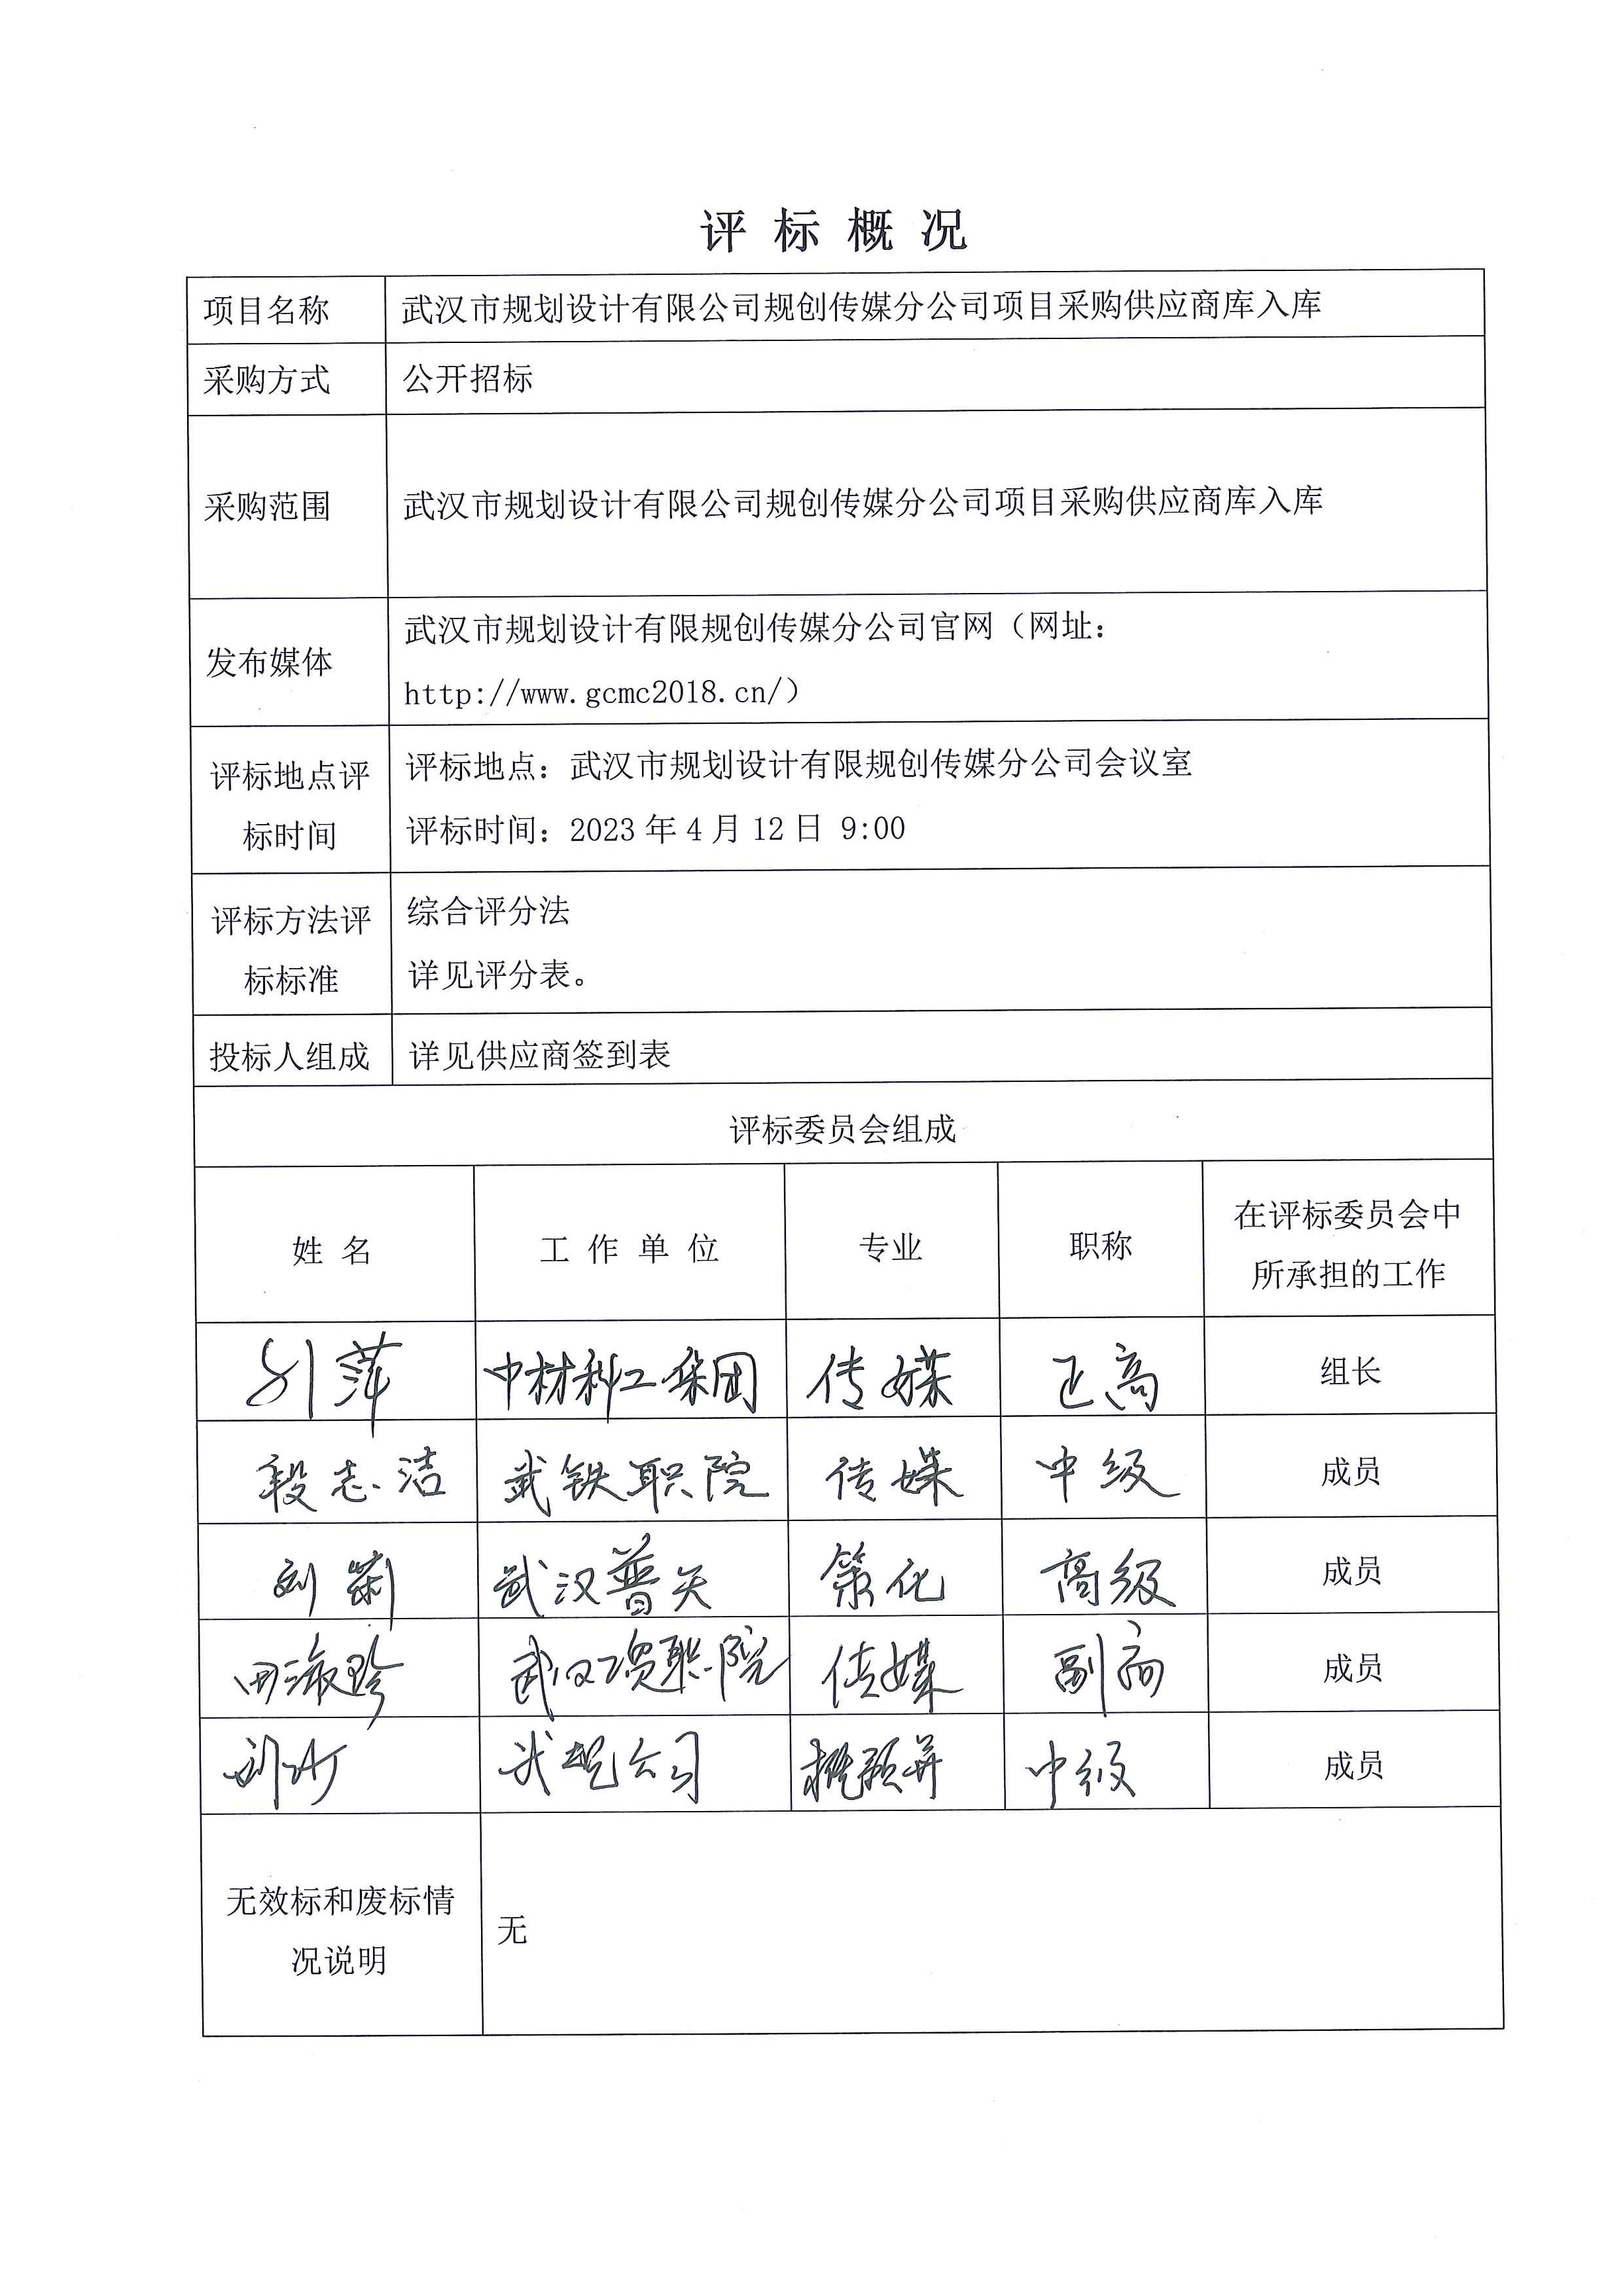 评标概况
项目名称 武汉市规划设计有限公司规创传媒分公司项目采购供应商库入库
采购方式 公开招标
采购范围 武汉市规划设计有限公司规创传媒分公司项目采购供应商库入库
发布媒体 武汉市规划设计有限规创传媒分公司官网（网址：
http://www.gcmc2018.cn/）
评标地点评标时间 评标地点：武汉市规划设计有限规创传媒分公司会议室
评标时间：2023年4月12日 9:00
评标方法评标标准 综合评分法
详见评分表。
投标人组成 详见供应商签到表
评标委员会组成
姓名 工作单位 专业 职称 在评标委员会中
所承担的工作
刘萍 中材科工集团 传媒 正高 组长
段志洁 武铁职院 传媒 中级 成员
刘 武汉普天 策化 高级 成员
田淑珍 武汉职院 传媒 副高 成员
刘 武规公司 中级 成员
无效标和废标情
况说明 无